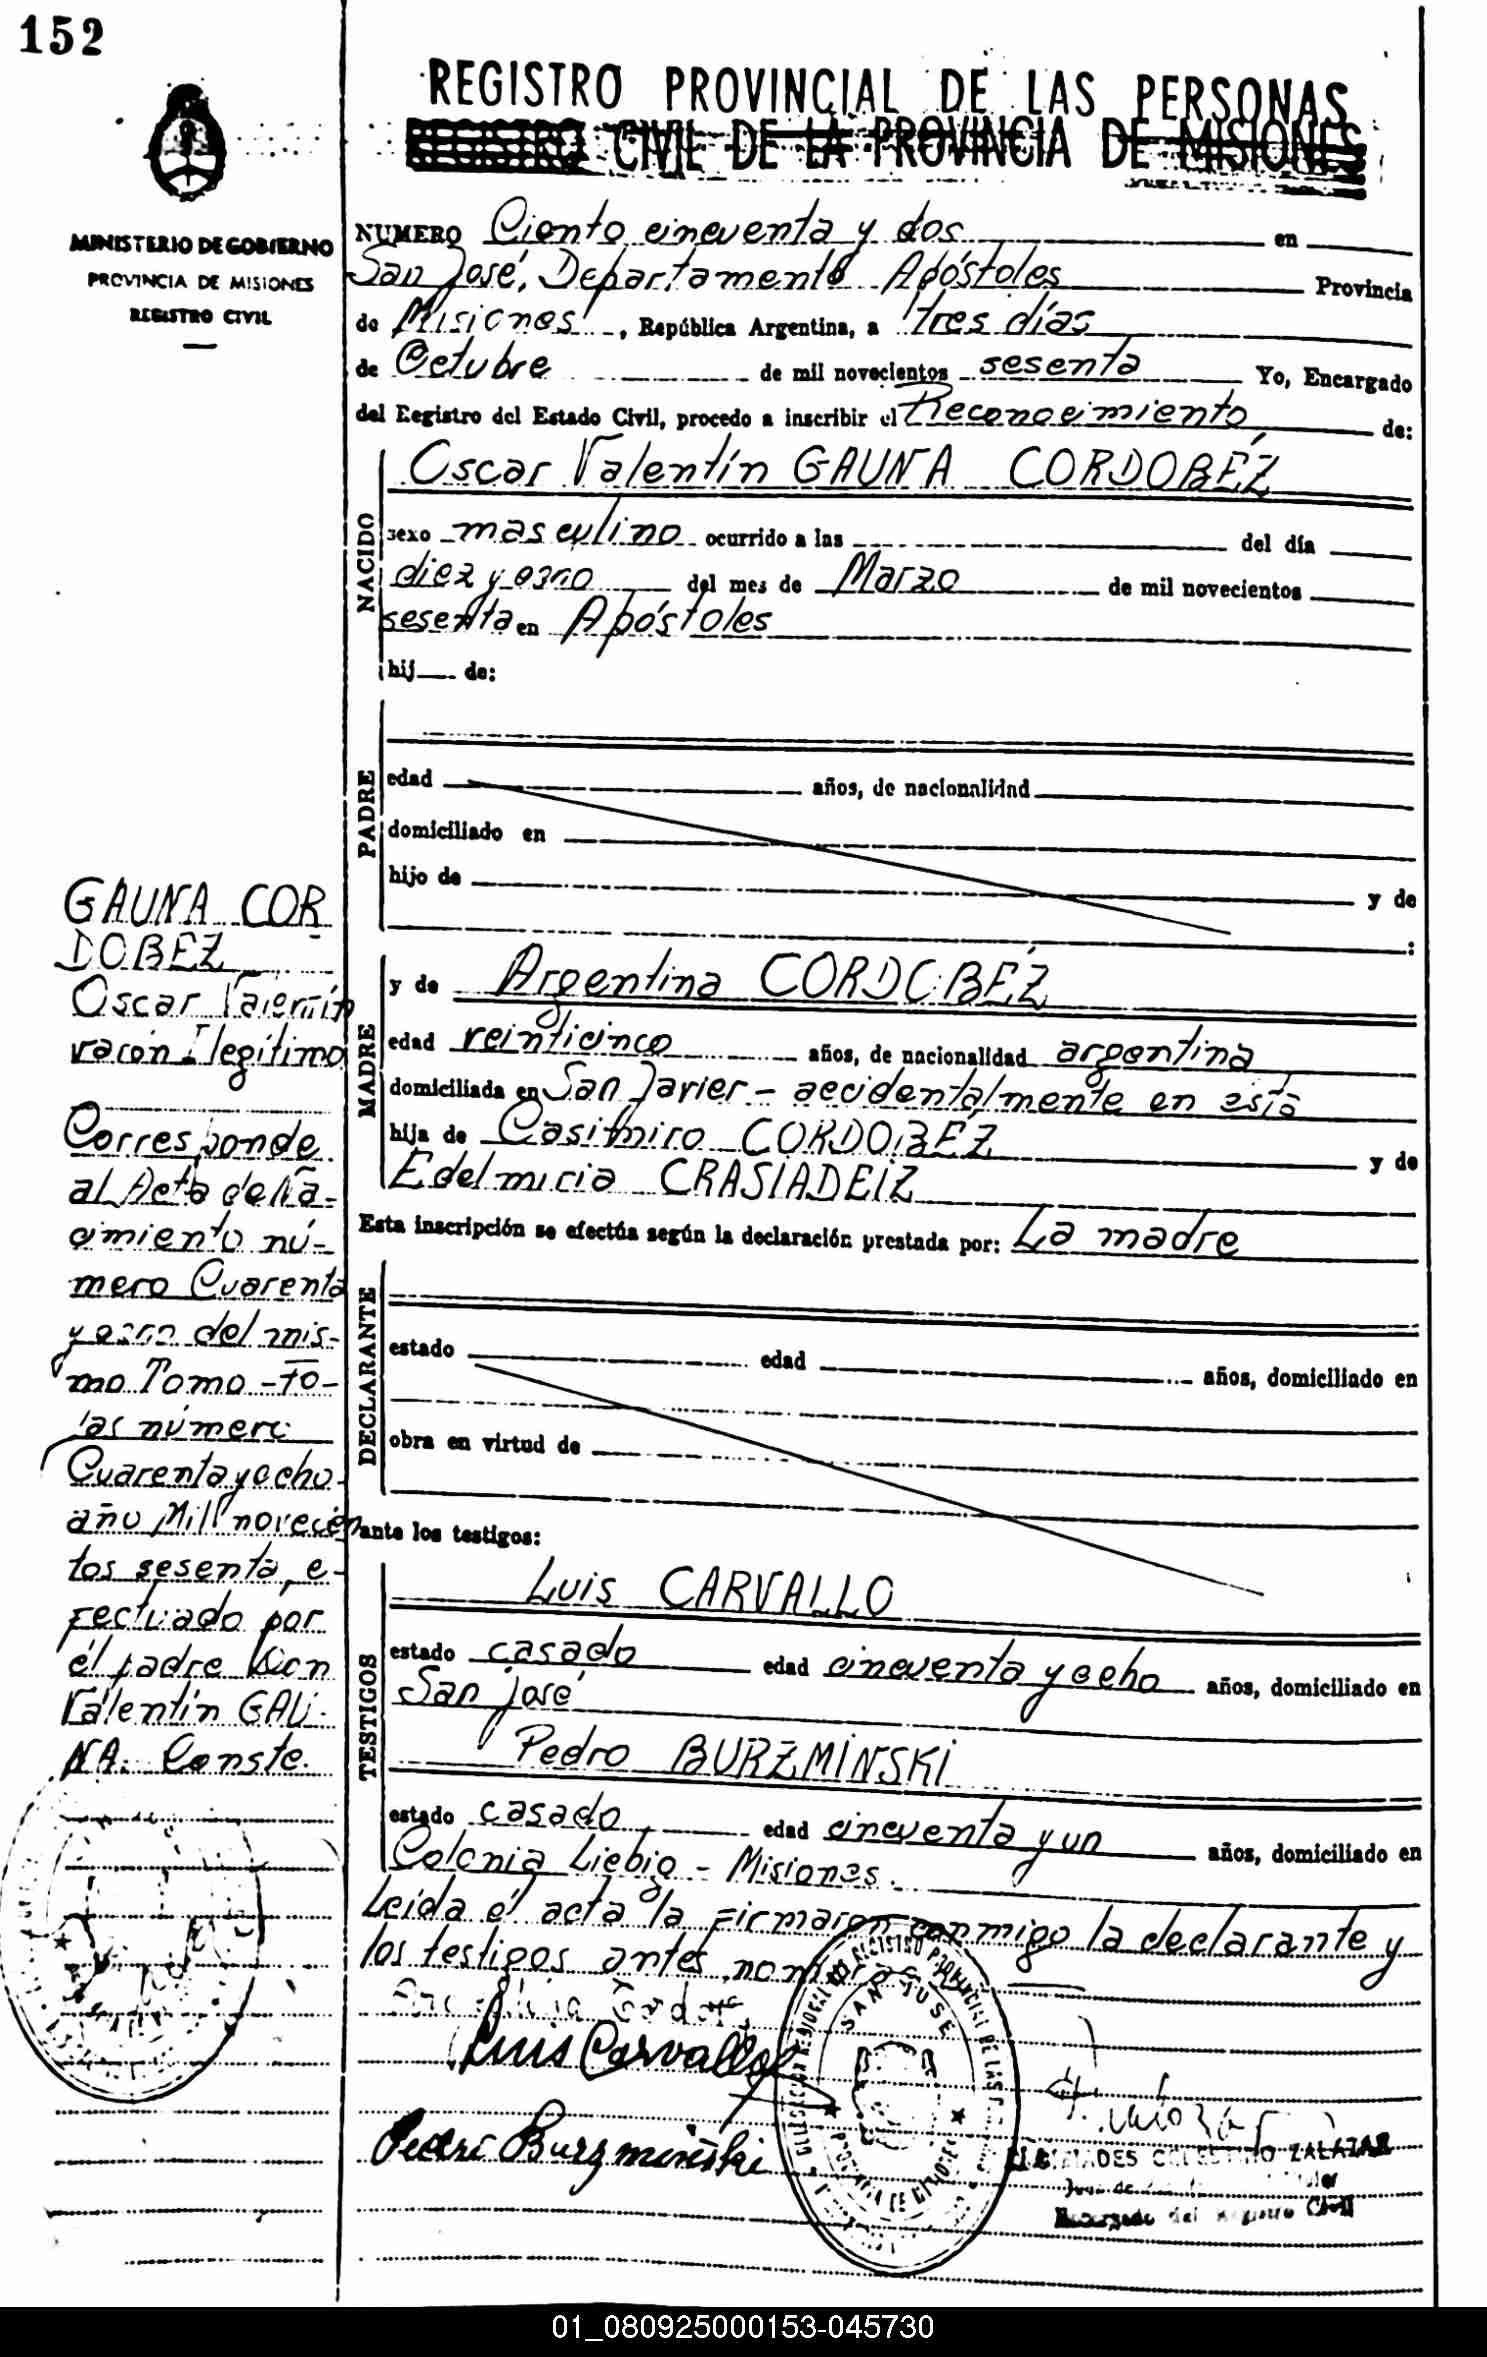 152
REGISTRO PROVINCIAL DE LAS PERSONAS
CIVIL DE LA PROVINCIA DE MISIONES
MINISTERIO DE GOBIERNO
PROVINCIA DE MISIONES
REGISTRO CIVIL
NUMERO Ciento cincuenta y dos en
San José, Departamento Apóstoles Provincia
de Misiones, República Argentina, a tres días
de Octubre de mil novecientos sesenta Yo, Encargado
del Registro del Estado Civil, procedo a inscribir el Reconocimiento de:
NACIDO
Oscar Valentín GAUNA CORDOBÉZ
sexo masculino ocurrido a las del día
diez y ocho del mes de Marzo de mil novecientos
sesenta en Apóstoles
hij de:
PADRE
edad años, de nacionalidad
domiciliado en
hijo de y de
:
MADRE
y de Argentina CORDOBÉZ
edad veinticinco años, de nacionalidad argentina
domiciliada en San Javier - accidentalmente en esta
hija de Casimiro CORDOBÉZ y de
Edelmicia CRASIADEIZ
Esta inscripción se efectúa según la declaración prestada por: La madre
DECLARANTE
estado edad años, domiciliado en
obra en virtud de
ante los testigos:
TESTIGOS
Luis CARVALLO
estado casado edad cincuenta y ocho años, domiciliado en
San José
Pedro BURZMINSKI
estado casado edad cincuenta y un años, domiciliado en
Colonia Liebig - Misiones.
Leida el acta la firmaron conmigo la declarante y
los testigos antes
Luis Carvallo
Pedro Burzminski
GAUNA COR
DOBEZ
Oscar Valentín
varón Ilegítimo
Corresponde
al Acta de Na-
cimiento nú-
mero Cuarenta
y ocho del mis-
mo Tomo - fo-
las número
Cuarenta y ocho
año Mil novecien
tos sesenta, e-
fectuado por
el padre Don
Valentín GAU-
NA. Conste.
REGISTRO PROVINCIAL DE LAS
SAN JOSE
PROVINCIA DE MISIONES
ZALAZAR
Encargado del Registro Civil
01_080925000153-045730